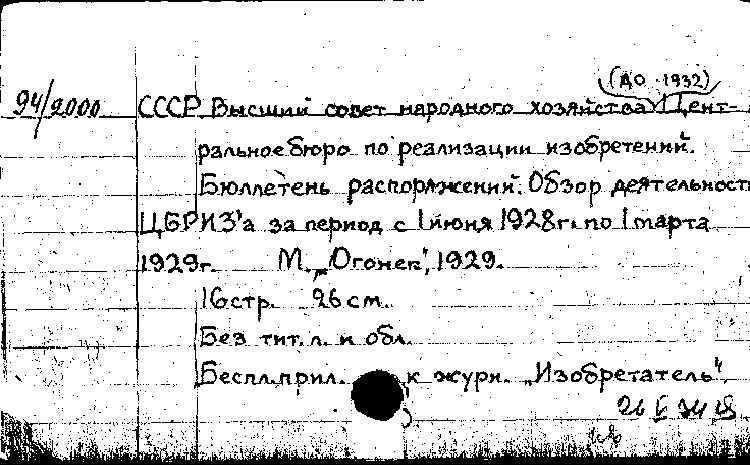 (до 1932)
94/2000 СССР Высший совет народного хозяйства Цент-
ральное бюро по реализации изобретений.
Бюллетень распоряжений. Обзор деятельност
ЦБРИЗ'а за период с 1 июня 1928г. по 1 марта
1929г. М. „Огонек", 1929.
16 стр. 26 см.
Без тит. л. и обл.
Беспл. прил. к журн. „Изобретатель"